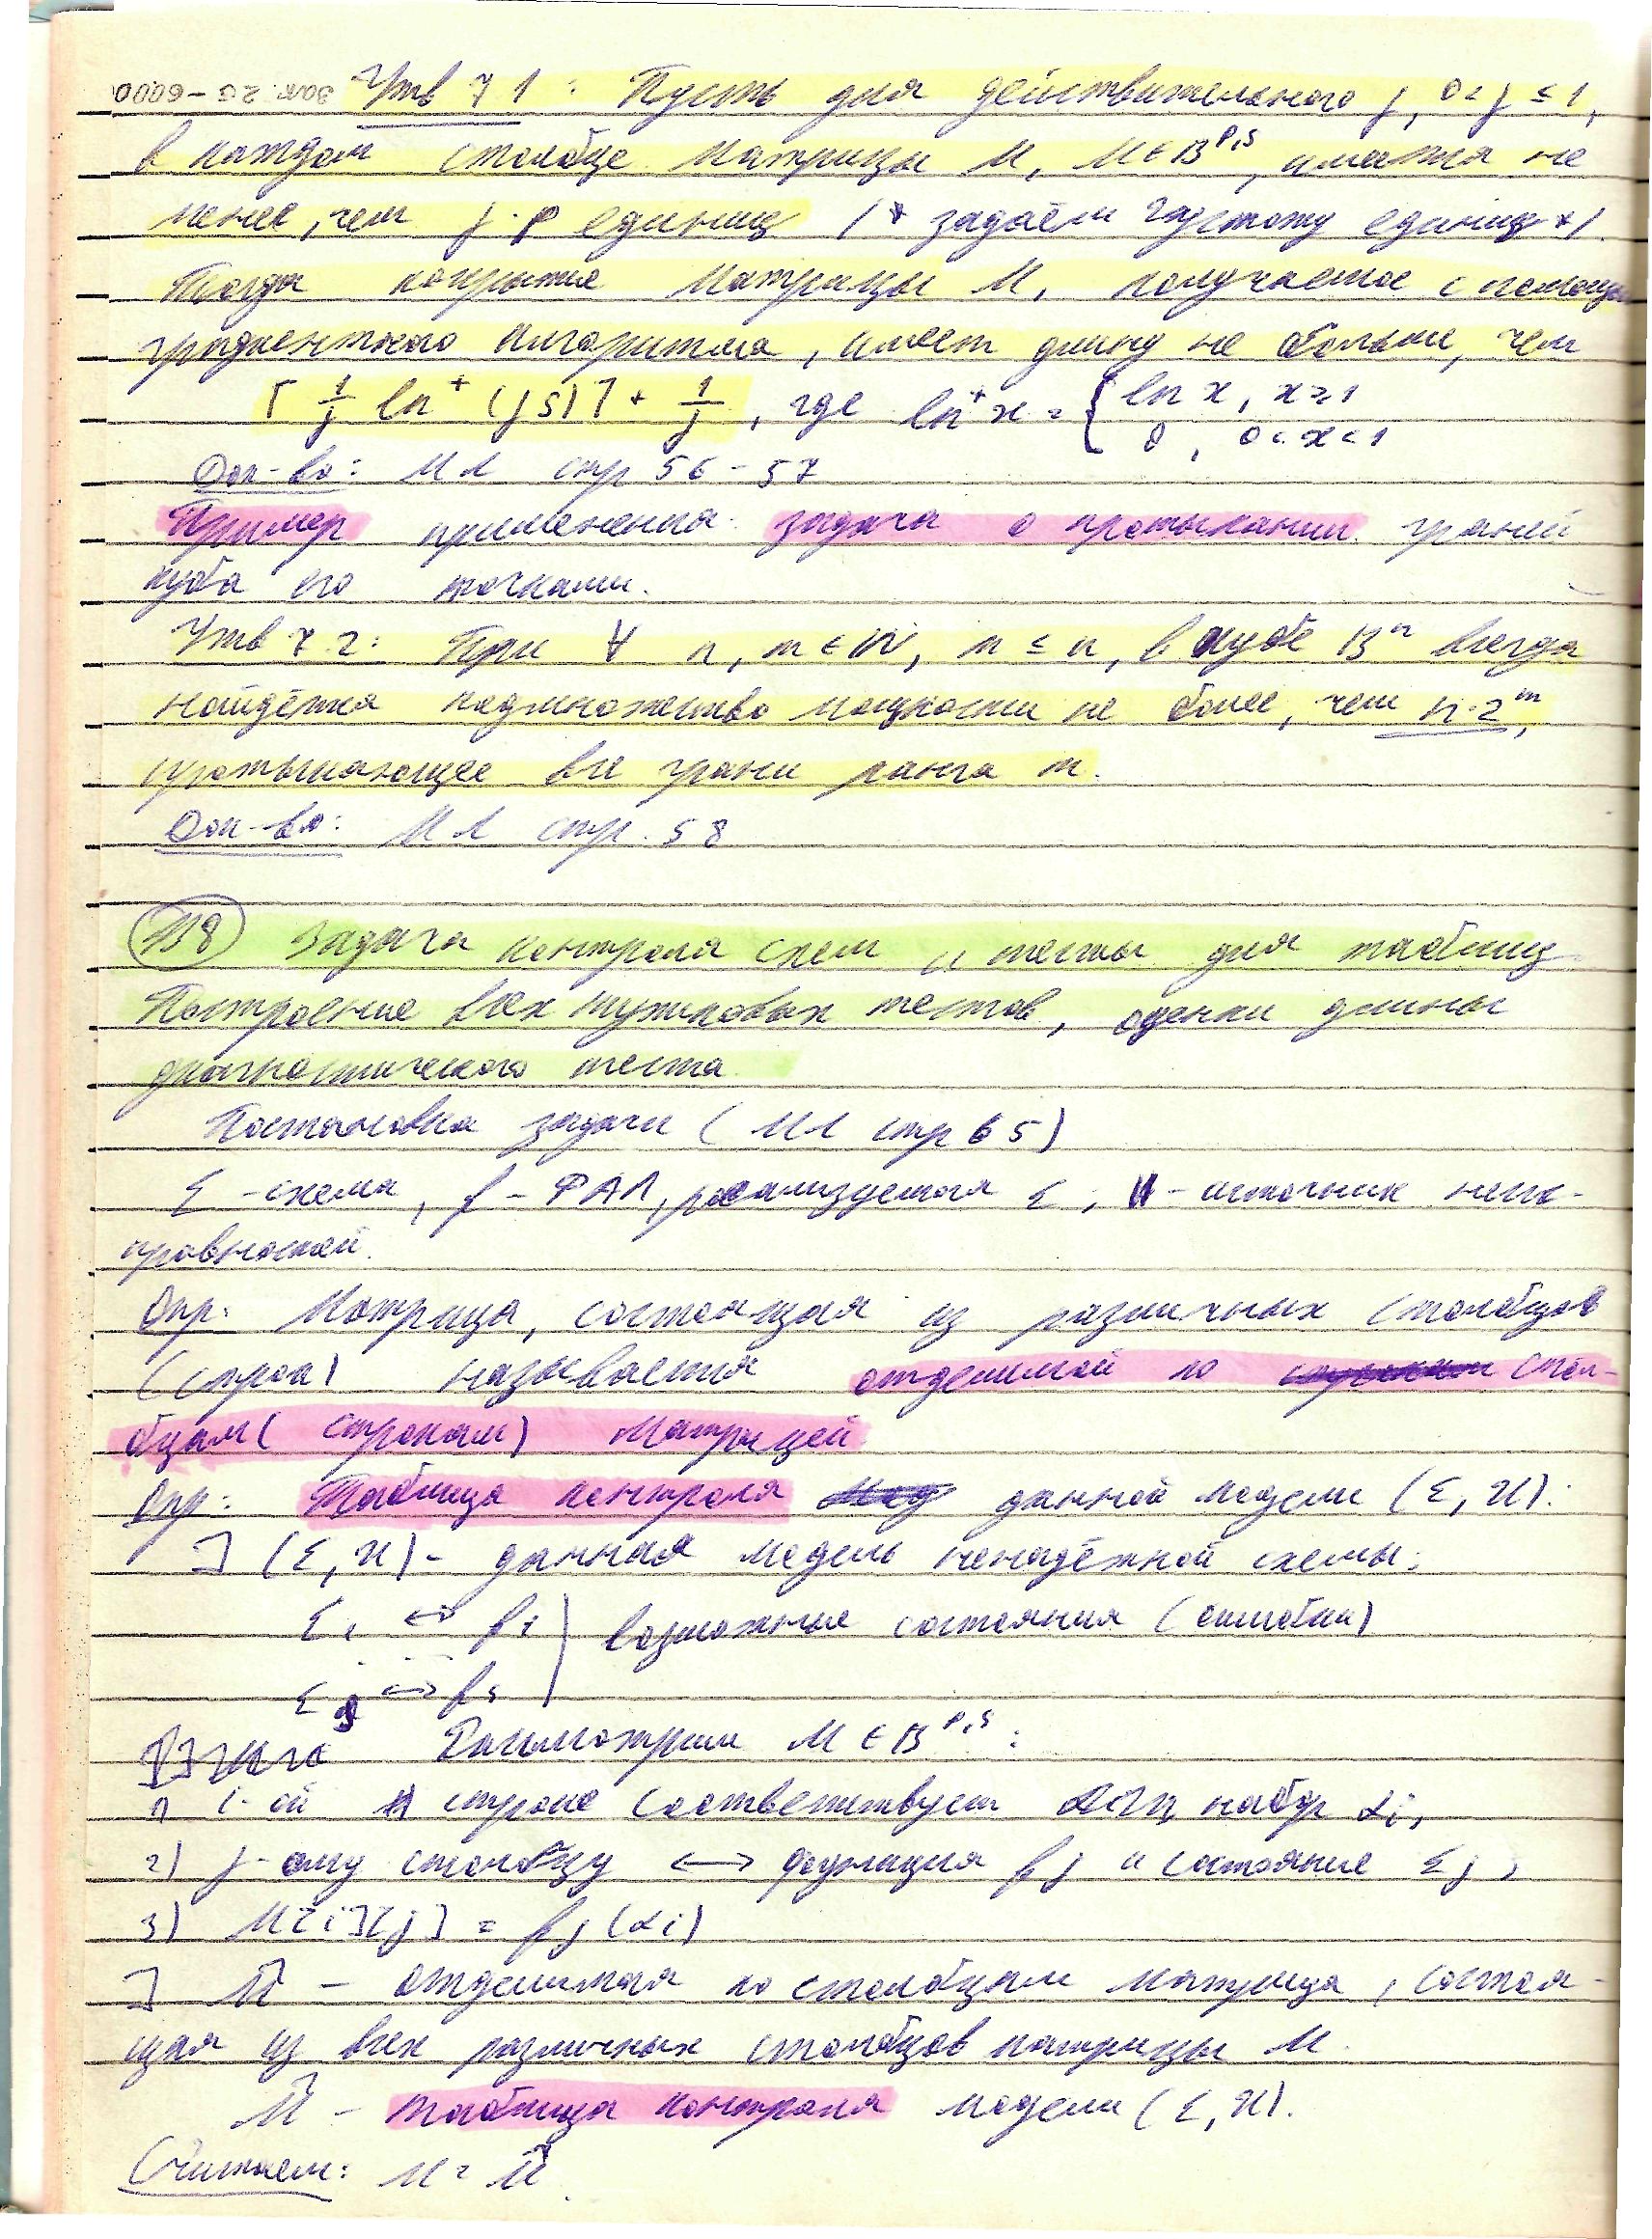 Зак. 25 - 6000
Утв 7.1: Пусть для действительного γ, 0 < γ ≤ 1,
в каждом столбце матрицы M, M ∈ B^{p,s}, имеется не
менее, чем γ·p единиц /* задаём густоту единиц */.
Тогда покрытие матрицы M, получаемое с помощью
градиентного алгоритма, имеет длину не больше, чем
⌈1/γ ln⁺(γs)⌉ + 1/γ, где ln⁺x = { ln x, x ≥ 1
0, 0 < x < 1
Док-во: МЛ стр 56 - 57
Пример применения: задача о протыкании граней
куба его точками.
Утв 7.2: При ∀ n, m ∈ N, m ≤ n, в кубе Bⁿ всегда
найдётся подмножество мощности не более, чем n·2^m,
протыкающее все грани ранга m.
Док-во: МЛ стр. 58
В8 Задача контроля схем и тесты для таблиц
Построение всех тупиковых тестов, оценки длины
диагностического теста.
Постановка задачи (МЛ стр 65)
Σ - схема, f - ФАЛ, реализуемая Σ, И - источник неис-
правностей.
Опр: Матрица, состоящая из различных столбцов
(строк) называется отделимой по стол-
бцам (строкам) матрицей
Опр: Таблица контроля данной модели (Σ, И):
] (Σ, И) - данная модель ненадёжной схемы:
Σ₁ ↔ f₁ } возможные состояния (ошибки)
Σs ↔ fs
Рассмотрим M ∈ B^{p,s}:
1) i-ой строке соответствует набор αi,
2) j-ому столбцу ↔ функция fj и состояние Σj,
3) M[i][j] = fj(αi)
] M̂ - отделимая по столбцам матрица, состоя-
щая из всех различных столбцов матрицы M.
M̂ - таблица контроля модели (Σ, И).
Считаем: M = M̂.